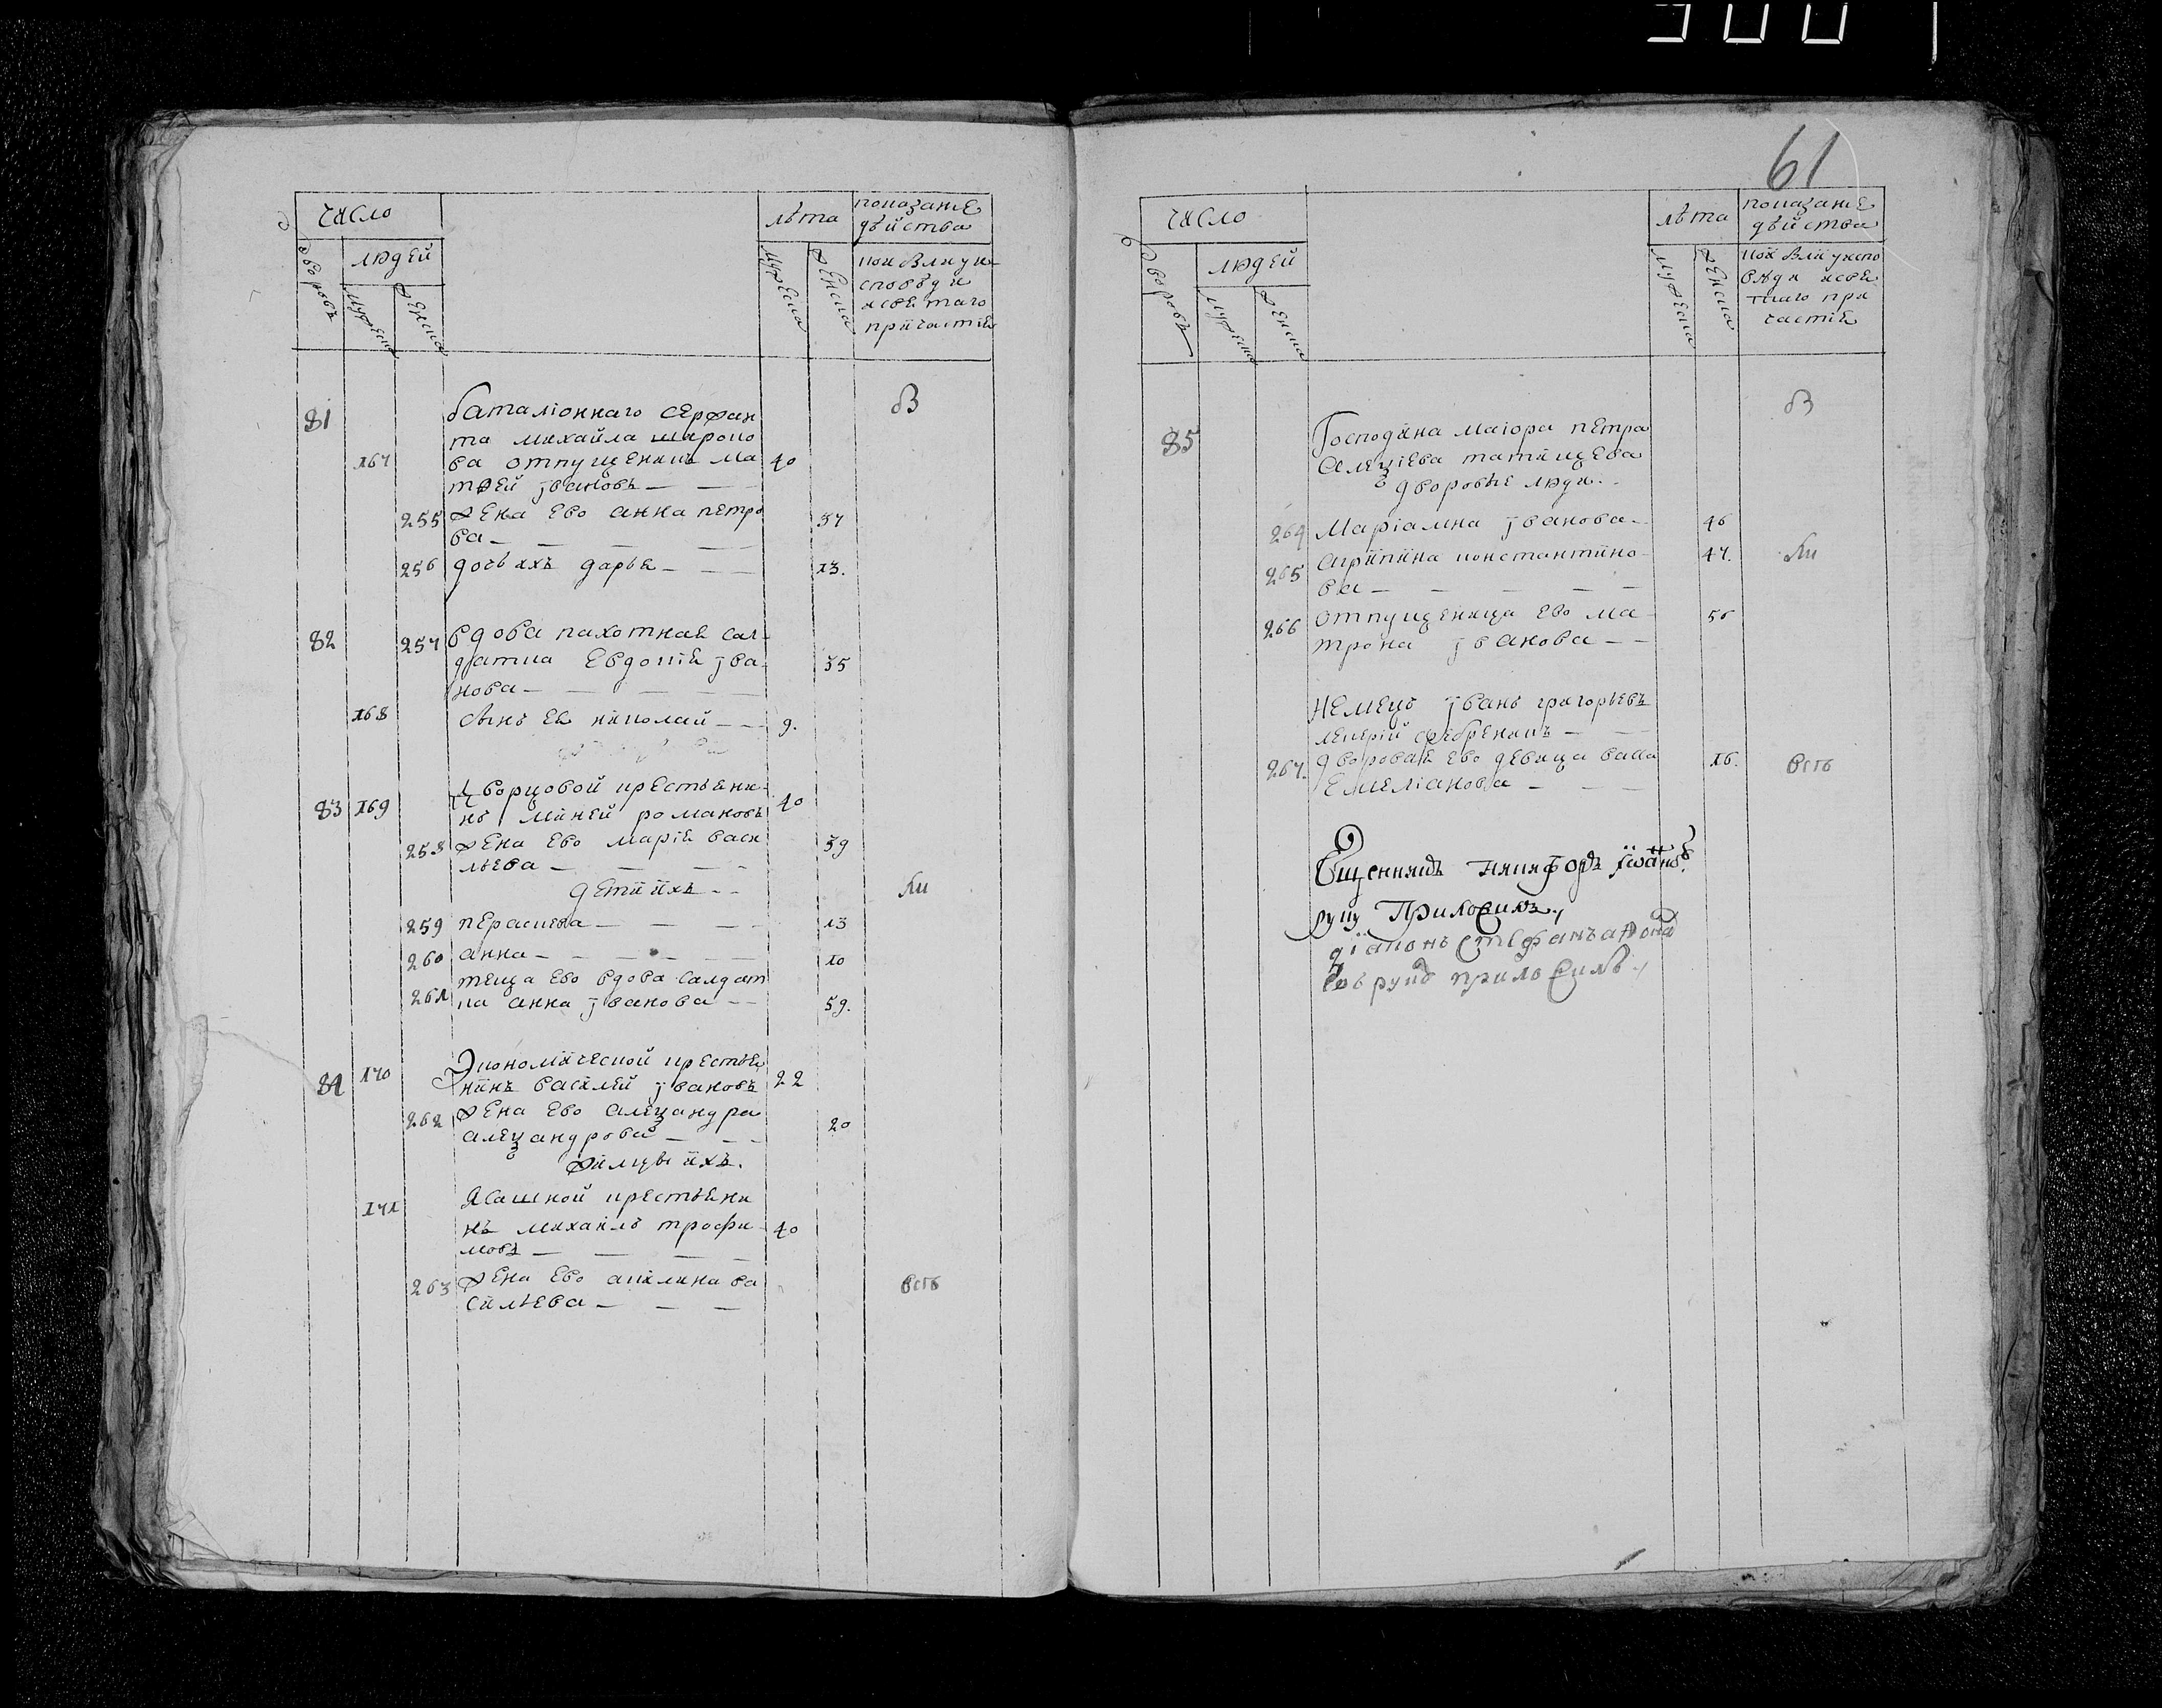 61
число
лѣта
показание
дѣйства
дворовъ
людей
мужеска
женска
мужеска
женска
кои были у ис
повѣди
и свѣтаго
причастия
в
81
баталионнаго сержан
та михайла широко
167
ва отпущеникъ ма
40
твей ївановъ
255
жена ево анна петро
37
ва
256
дочь ихъ дарья
13.
82
257
вдова пахотная сал
датка евдокия їва
35
нова
168
сынъ ея николай
9.
83
169
дворцовой крестьяни
нъ миней романовъ
40
258
жена ево мария васи
39
льева
дети ихъ
ли
259
пераскева
13
260
анна
10
261
теща ево вдова салдат
ка анна їванова
59.
84
170
Экономической крестья
нинъ василей ївановъ
22
262
жена ево алеѯандра
20
алеѯандрова
жилцы ихъ.
171
Ясашной крестьяни
нъ михаилъ трофи
40
мовъ
263
жена ево акилина ва
сильева
всѣ
число
лѣта
показание
дѣйства
дворовъ
людей
мужеска
женска
мужеска
женска
кои были у испо
вѣди и свѣ
таго при
частия
в
85
Господина маиора петра
алеѯиева татищева
дворовые люди.
264
Мариамна їванова
46
265
агрипина константино
47.
ли
ва
266
отпущеница ево ма
56
трона їванова
немецъ їванъ григорьевъ
267.
дворовая ево девица васса
16.
всѣ
емелианова
Сщенникъ никифоръ їѡанновъ
руку приложилъ
діаконъ стефанъ
руку приложилъ